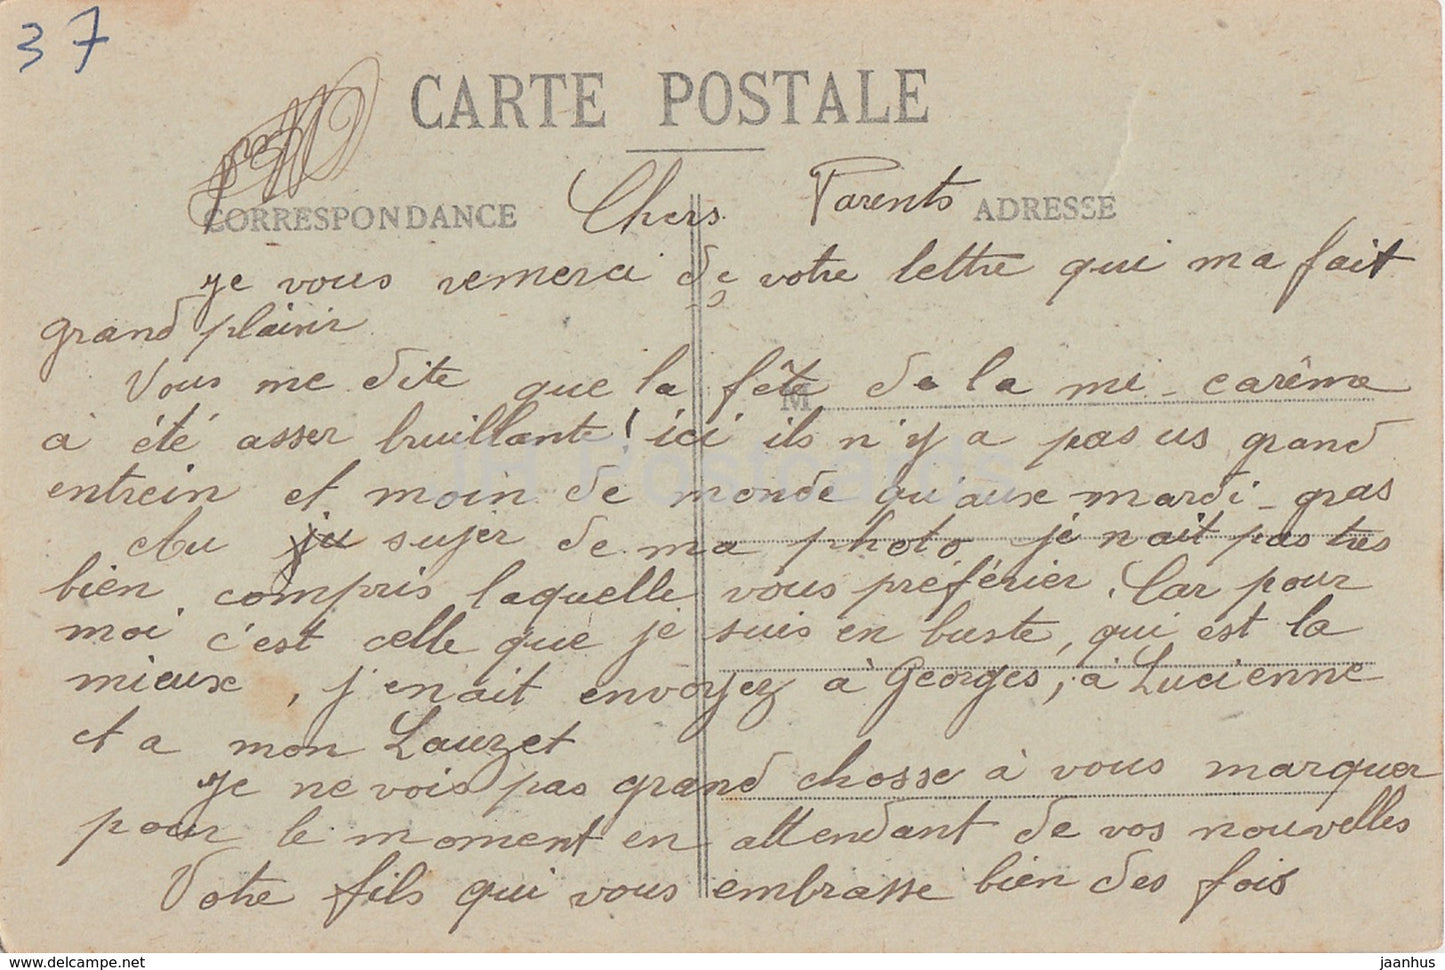 37
CARTE POSTALE
CORRESPONDANCE
ADRESSE
Chers Parents
Je vous remerci de votre lettre qui ma fait
grand plaisir
Vous me dite que la fête de la mi-carême
M
a été asser bruillante! ici ils n'y a pas us grand
entrein et moin de monde qu'aux mardi-gras
JH Postcards
Au ju sujer de ma photo je n'ait pas tres
bien compris laquelle vous préférier. Car pour
moi c'est celle que je suis en buste, qui est la
mieux, j'enait envoyez à Georges, à Lucienne
et a mon Lauzet
Je ne vois pas grand chosse à vous marquer
pour le moment en attendant de vos nouvelles
Votre fils qui vous embrasse bien des fois
www.delcampe.net
jaanhus